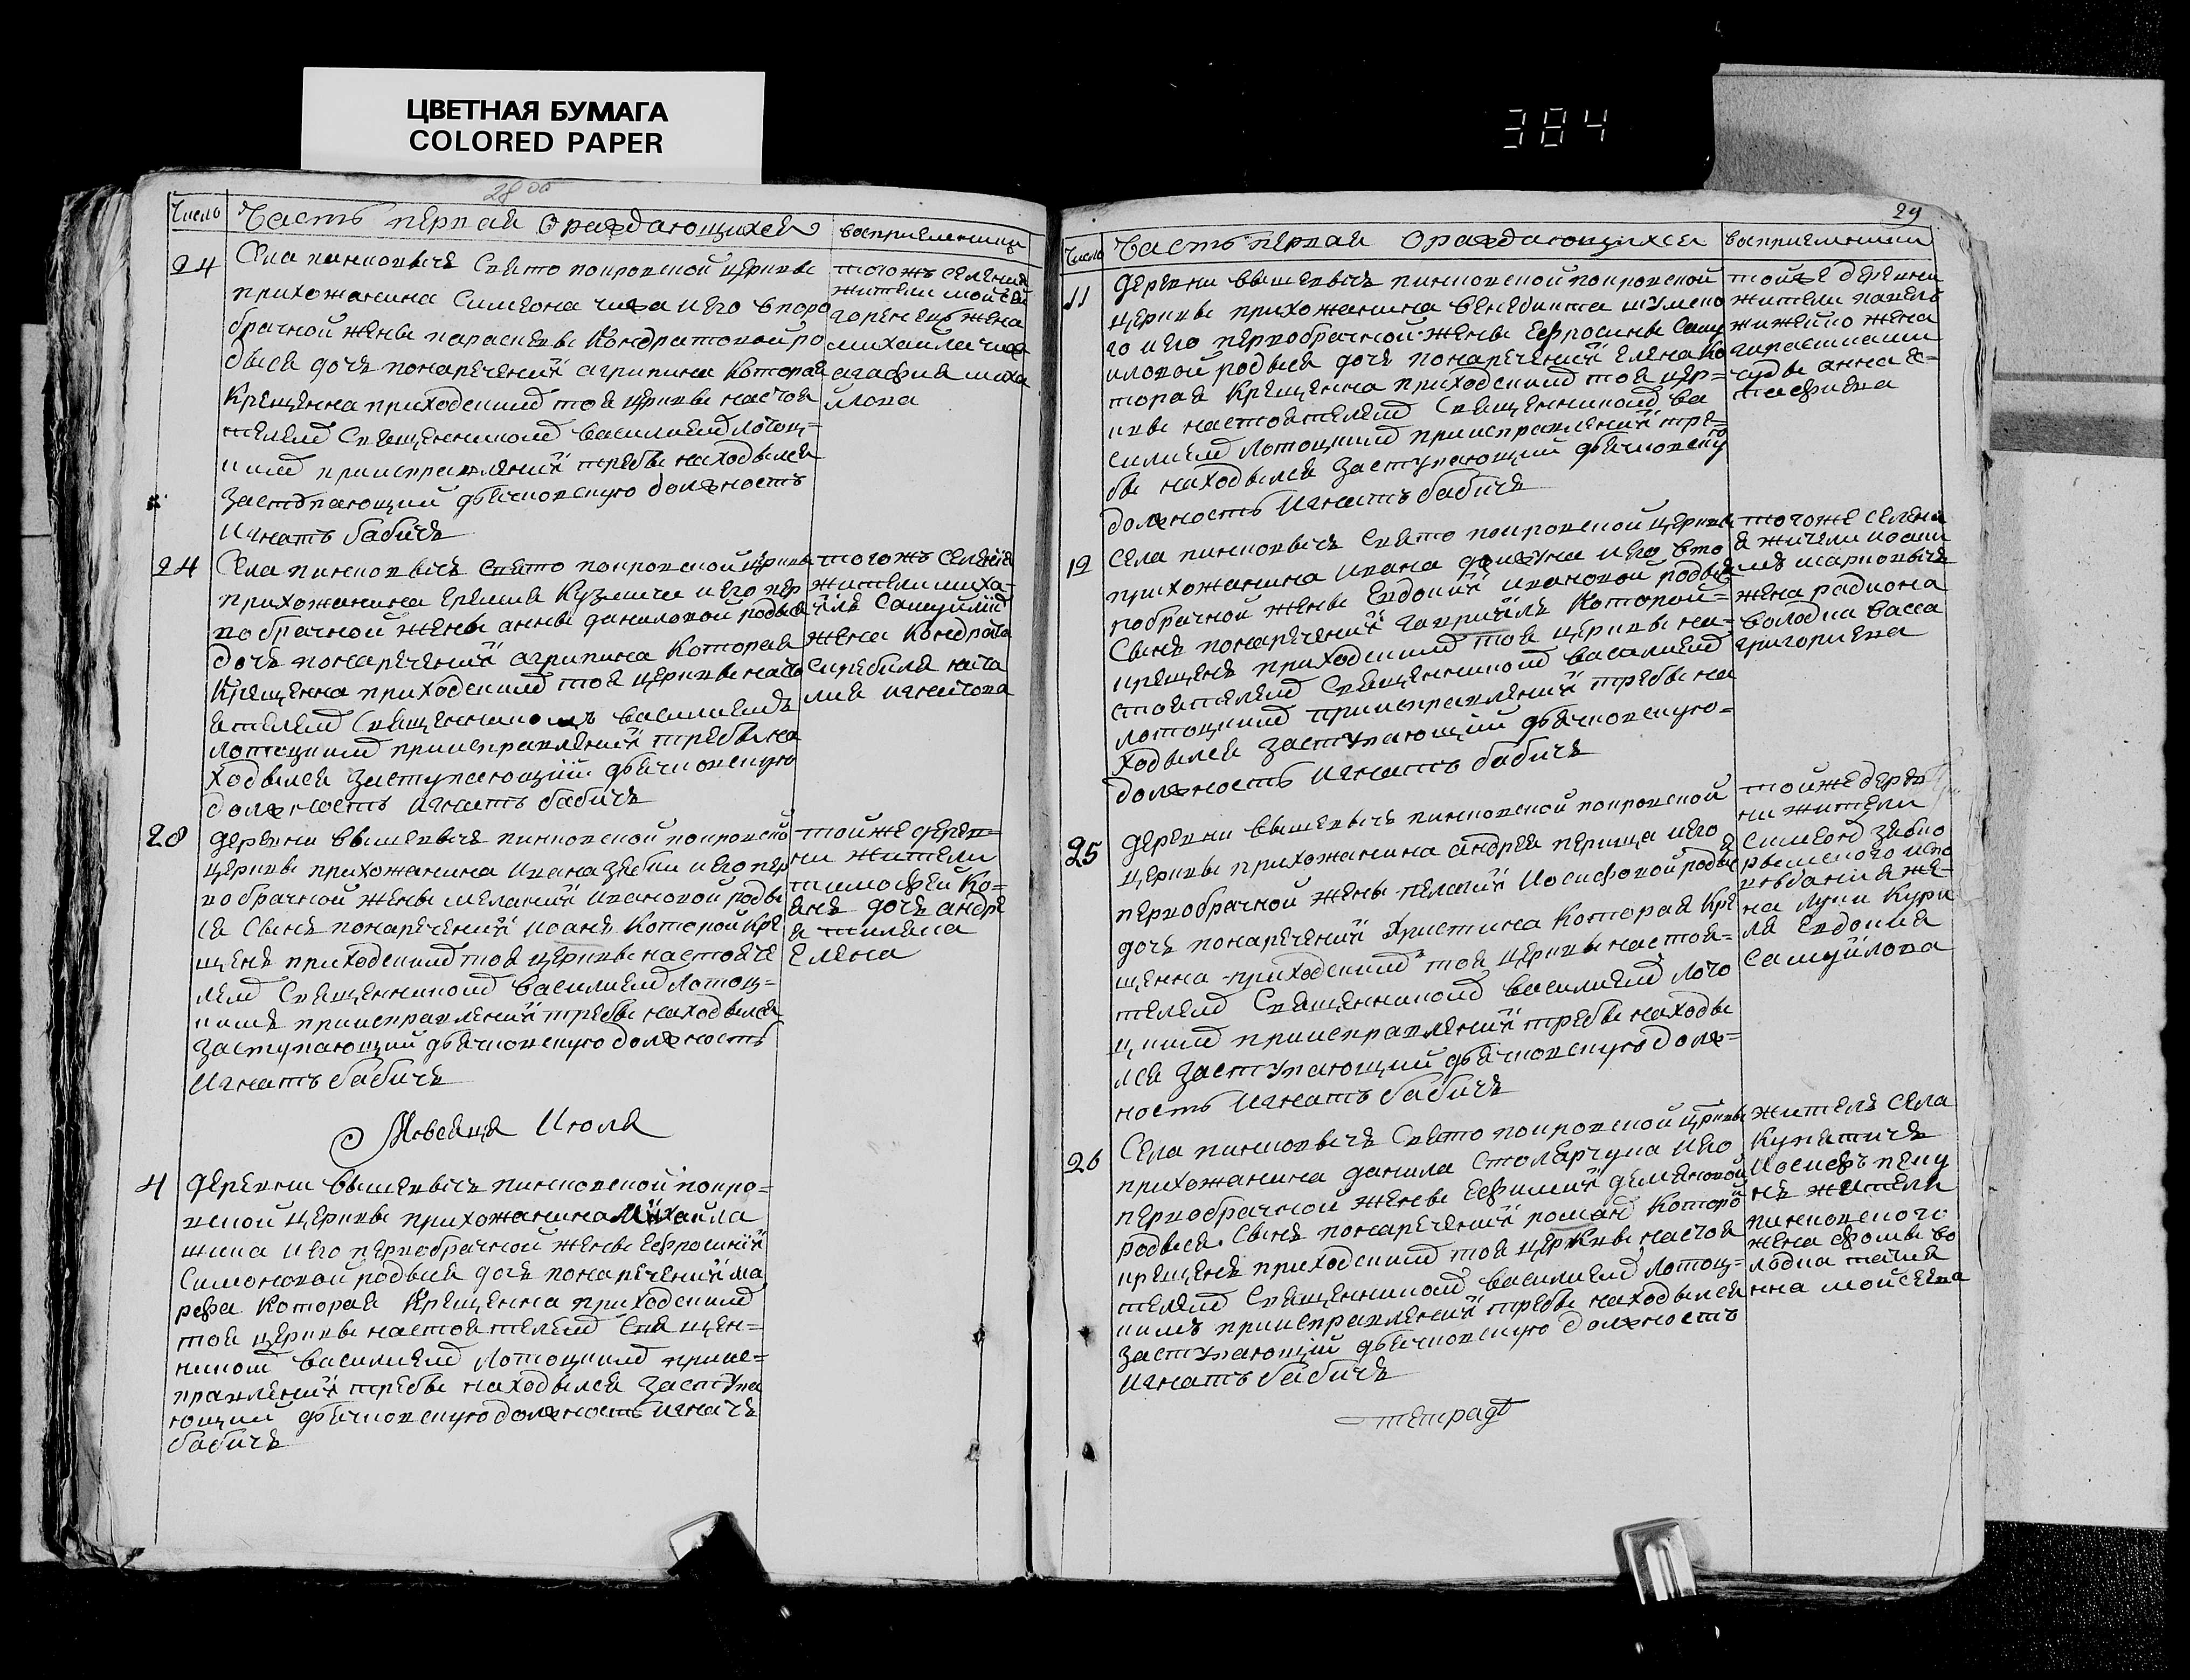 ЦВЕТНАЯ БУМАГА
COLORED PAPER
384
28 об
Число
Часть первая О раждающихся
восприемники
24
Села пинковичъ Свято покровской церкви
прихожанина Симеона чижа и его второ
брачной жены параскевы Кондратовой ро
дыся дочь понареченїй агрипина Которая
Крещенна приходскимъ тоя церкви настоя
телемъ Священникомъ василиемъ лотоц=
кимъ приисправленїй требы находылся
заступающий дьячковскую должность
Игнатъ бабичъ
тогожъ селения
жители мойсей
горенецъ жена
михайла чижа
агафия миха
йлова
24
Села пинковичъ Свято покровской церкви
прихожанина еремия Кузмича и его пер
вобрачной жены анны даниловой родыся
дочь понареченїй агрипина Которая
Крещенна приходскимъ тоя церкви насто
ятелемъ Священникомъ василиемъ
лотоцкимъ приисправленїй требы на
ходылся заступающїй дьячковскую
должность Игнатъ бабичъ
тогожъ селенїя
жители миха=
йлъ Самуйликъ
жена Кондрата
ната
лия игнатова
28
деревни вышевичъ пинковской покровской
церкви прихожанина Ивана зяби и его пер
вобрачной жены меланїй Ивановой роды
ся Сынъ понареченїй иоанъ Которой Кре
щенъ приходскимъ тоя церкви настояте
лемъ Священникомъ василиемъ лотоц=
кимъ приисправленїй требы находылся
заступающий дьячковскую должность
Игнатъ бабичъ
тойже дерев=
ни жители
тимофей Ко=
дочь андре
я
елена
Мѣсяца Июля
4
деревни вышевичъ пинковской покро=
вской церкви прихожанина Михайла
жика и его первобрачной жены Ефросинїй
Симоновой родыся дочь понареченїй ма
рфа Которая Крещенна приходскимъ
тоя церкви настоятелемъ Священ=
никомъ василиемъ лотоцкимъ приис=
правленїй требы находылся заступа
ющий дьячковскую должность игнатъ
бабичъ
29
Число
Часть первая О раждающихся
восприемники
11
деревни вышевичъ пинковской покровской
церкви прихожанина венедикта шумско
го и его первобрачной жены Ефросины Саму
иловой родыся дочь понареченїй елена Ко
торая Крещенна приходскимъ тоя цер=
кви настоятелемъ Священникомъ ва
силиемъ лотоцкимъ приисправленїй тре=
бы находылся заступающий дьячковску
должность Игнатъ бабичъ
тойже деревни
жители павелъ
жижейко жена
анна е=
12
Села пинковичъ Свято покровской церкви
прихожанина Ивана должука и его вто
робрачной жены Евдокїй ивановой родыся
Сынъ понареченїй гавриїлъ Которой=
крещенъ приходскимъ тоя церкви на=
стоятелемъ Священникомъ василиемъ
лотоцкимъ приисправленїй требы на
ходылся заступающий дьячковскую=
должность Игнатъ бабичъ
тогоже селени
я жители иоаки
мъ марковичъ
жена радиона
володка васса
григориева
25
деревни вышевичъ пинковской покровской
церкви прихожанина андрея перица и его
первобрачной жены пелагїй Иосифовой родыся
дочь понареченїй христина Которая Кре
щенна приходскимъ тоя церкви настоя=
телемъ Священникомъ василиемъ лото
цкимъ приисправленїй требы находы
лся заступающий дьячковскую долж=
ность Игнатъ бабичъ
тойже дерев
ни жители
Симеонъ
же=
на луки Кури
ля евдокия
Самуйлова
26
Села пинковичъ Свято покровской церкви
прихожанина данила Столярчука и его
первобрачной жены Ефимїй демяновой
родыся Сынъ понареченїй романъ Которой
крещенъ приходскимъ тоя церкви настоя
телемъ Священникомъ василиемъ лотоц=
кимъ приисправленїй требы находылся
заступающїй дьячковскую должность
Игнатъ бабичъ
житель села
Купятичъ
Иосифъ пеку
нъ жители
пинковского
жена фомы во
лодка татия
нна мойсеева
тетрадь